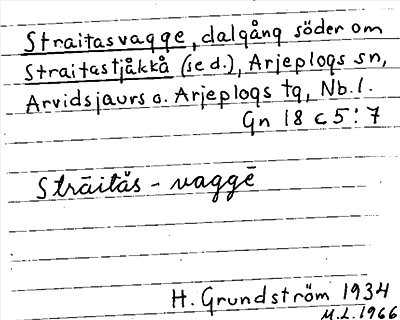 Straitasvagge, dalgång söder om
Straitastjåkkå (se d.), Arjeplogs sn,
Arvidsjaurs o. Arjeplogs tg, Nb.l.
Gn 18 c 5:7
Strāităs - vaggē
H. Grundström 1934
M.L. 1966